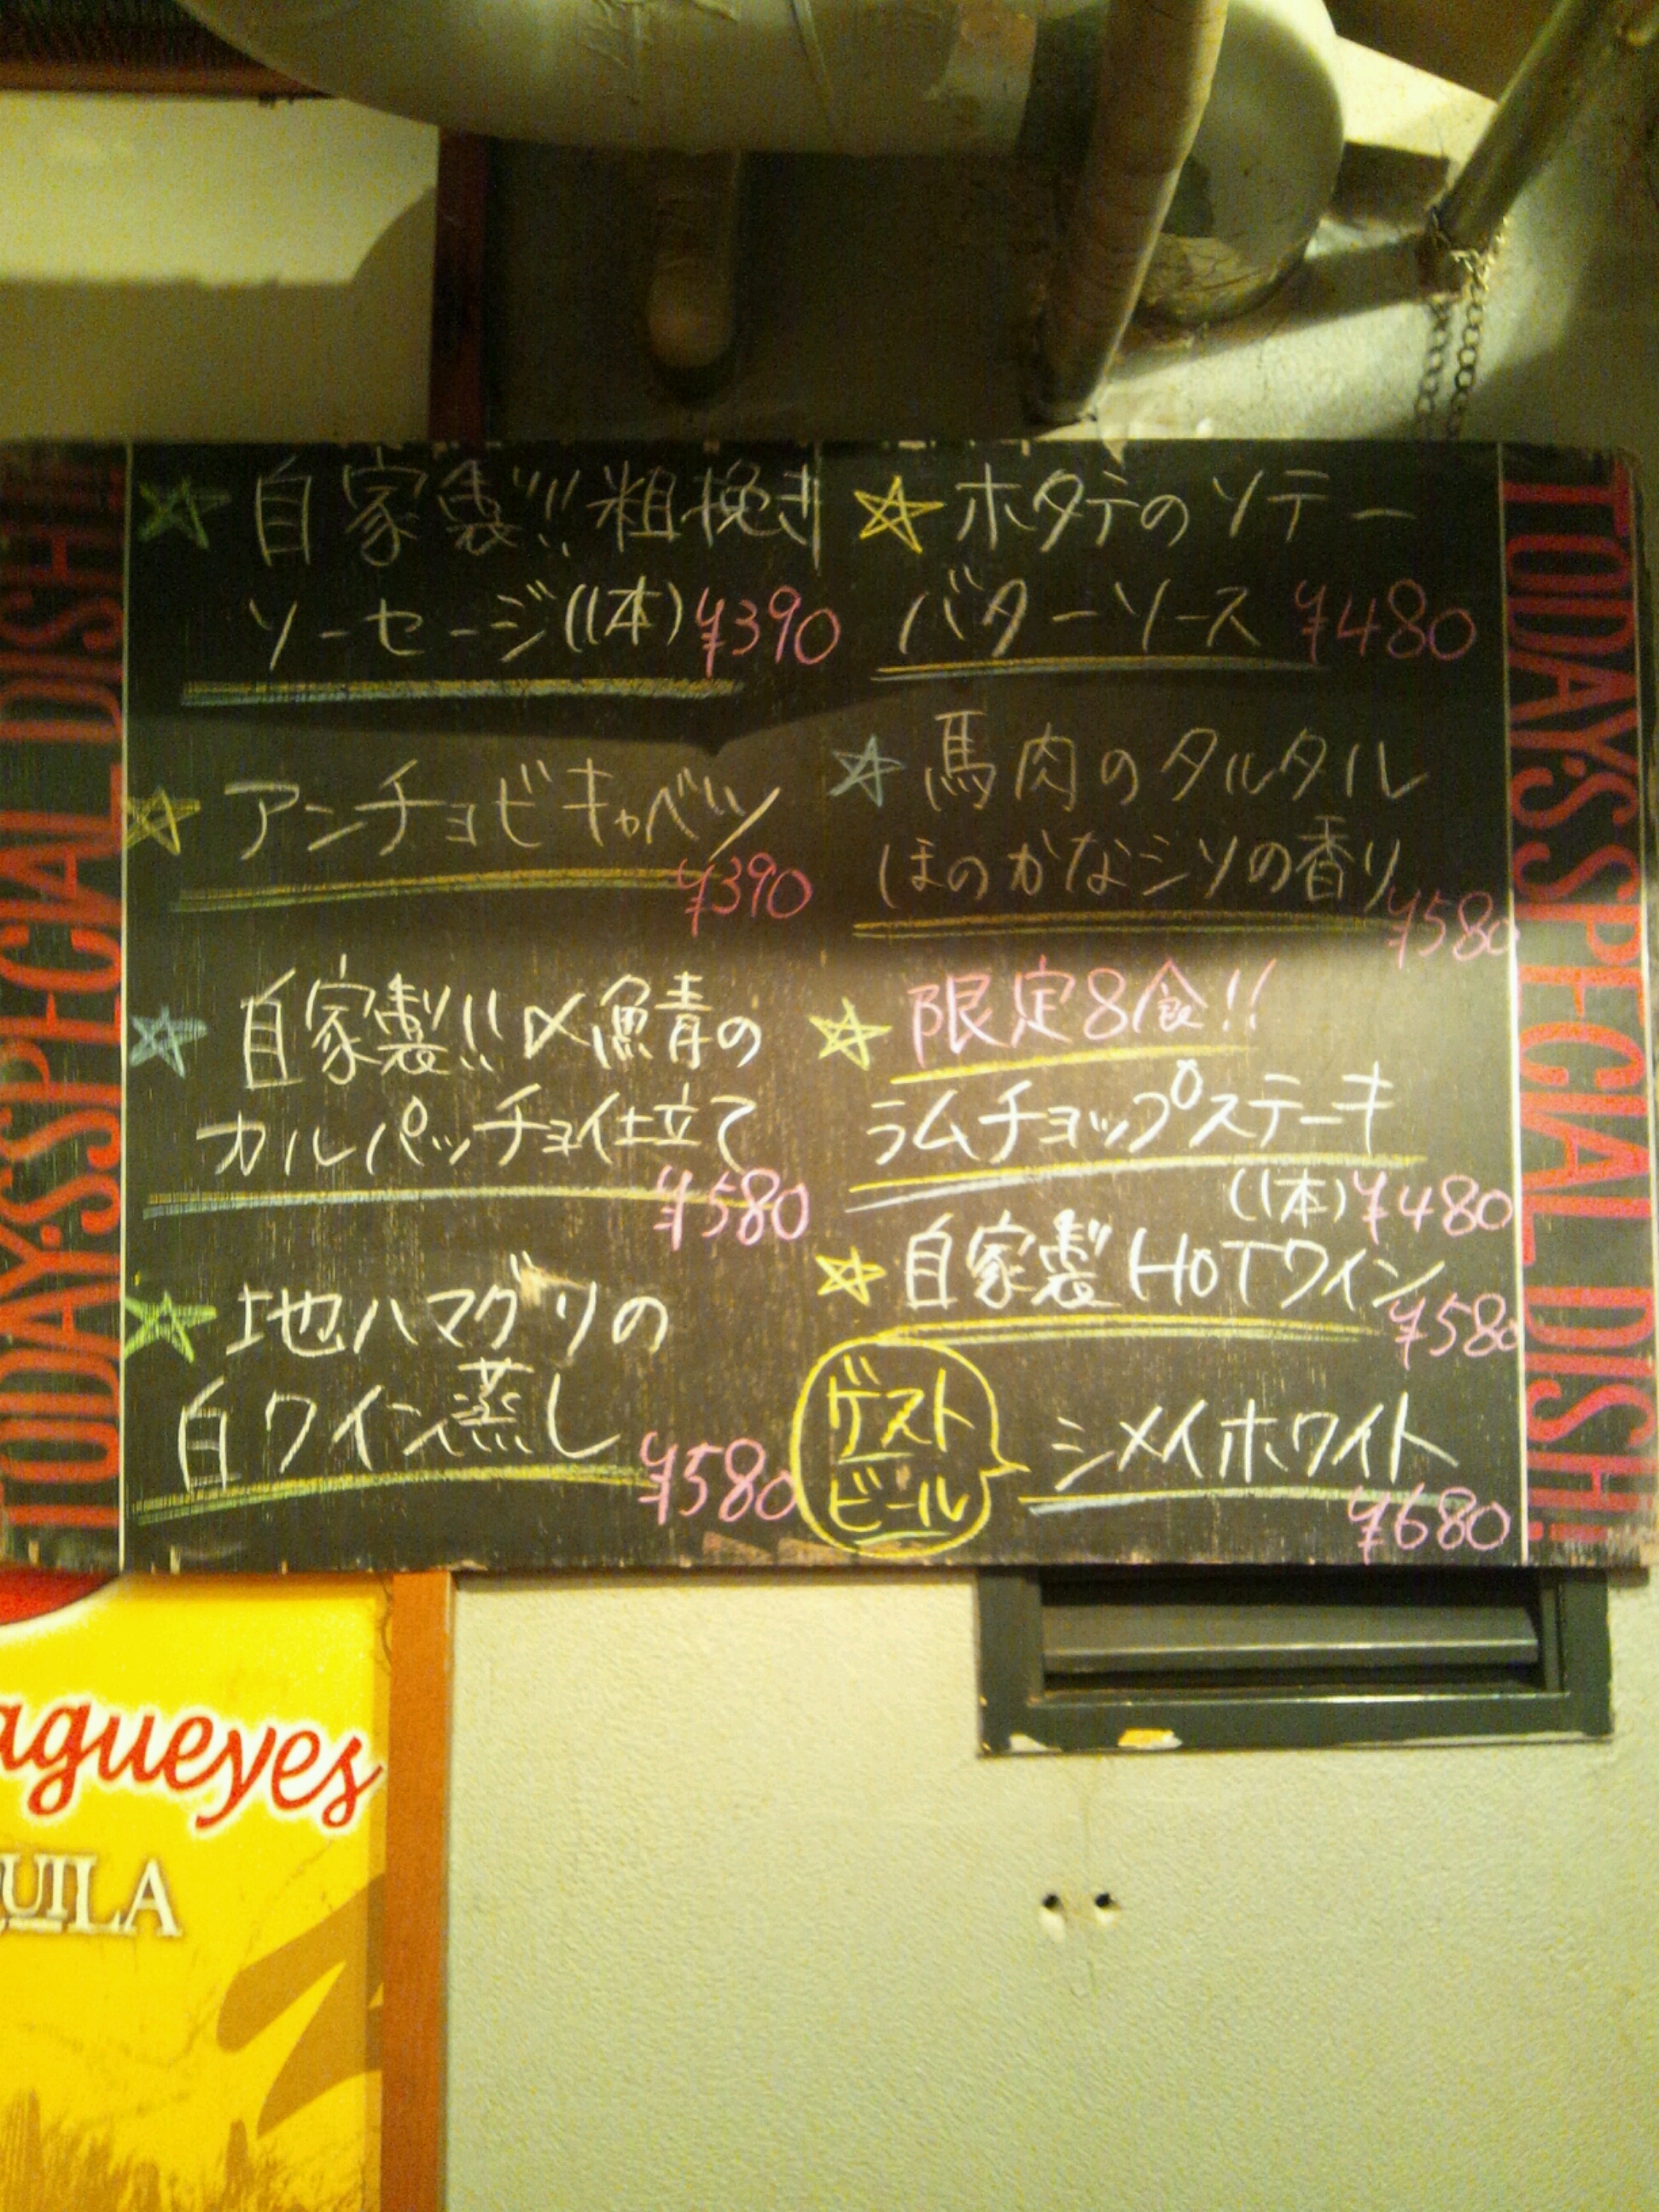 TODAY'S SPECIAL DISH!
自家製!!! 粗挽き
ソーセージ(1本) ¥390
アンチョビキャベツ
¥390
自家製!! 〆鯖の
カルパッチョ仕立て
¥580
地ハマグリの
白ワイン蒸し
¥580
ホタテのソテー
バターソース ¥480
馬肉のタルタル
ほのかなシソの香り
¥580
限定8食!!
ラムチョップステーキ
(1本) ¥480
自家製HOTワイン
¥580
ゲスト
ビール
シメイホワイト
¥680
TODAY'S SPECIAL DISH!
agueyes
QUILA